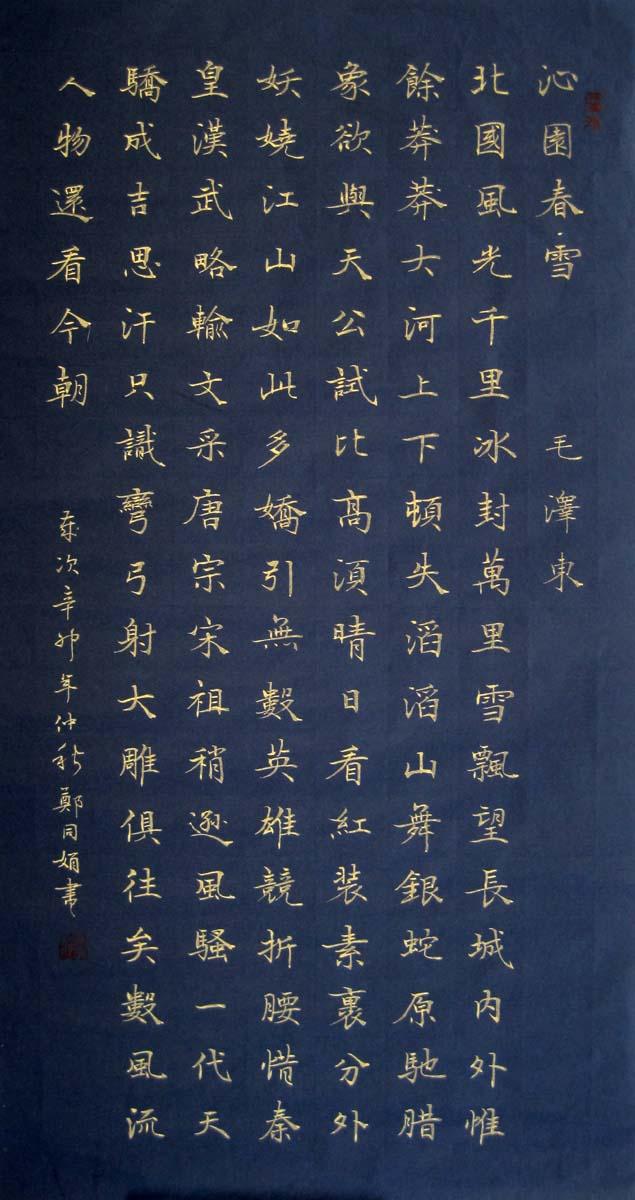 沁園春·雪 毛澤東
北國風光千里冰封萬里雪飄望長城内外惟
餘莽莽大河上下頓失滔滔山舞銀蛇原馳腊
象欲與天公試比高湏晴日看紅装素裹分外
妖嬈江山如此多嬌引無數英雄競折腰惜秦
皇漢武略輸文采唐宗宋祖稍遜風騷一代天
驕成吉思汗只識彎弓射大雕俱往矣數風流
人物還看今朝
歲次辛卯年仲秋鄭同娟書